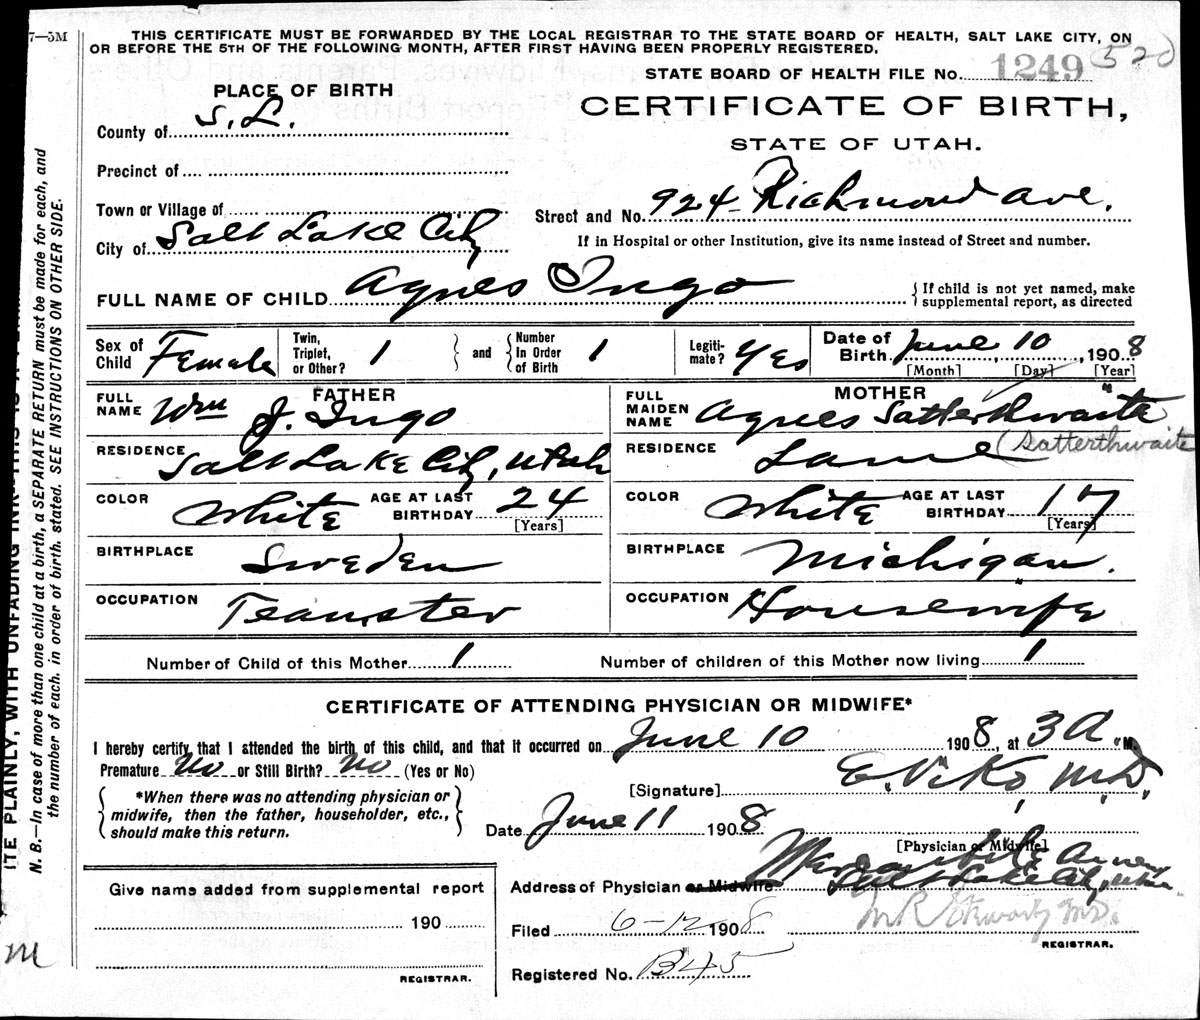 7—5M
THIS CERTIFICATE MUST BE FORWARDED BY THE LOCAL REGISTRAR TO THE STATE BOARD OF HEALTH, SALT LAKE CITY, ON
OR BEFORE THE 5TH OF THE FOLLOWING MONTH, AFTER FIRST HAVING BEEN PROPERLY REGISTERED.
STATE BOARD OF HEALTH FILE No. 1249 520
PLACE OF BIRTH
CERTIFICATE OF BIRTH,
STATE OF UTAH.
County of S. L.
Precinct of
Town or Village of
Street and No. 924 Richmond Ave.
City of Salt Lake City
If in Hospital or other Institution, give its name instead of Street and number.
FULL NAME OF CHILD Agnes Ingo { If child is not yet named, make supplemental report, as directed
Sex of Child Female Twin, Triplet, or Other? 1 } and { Number In Order of Birth 1 Legiti- mate? Yes Date of Birth June 10, 1908
[Month] [Day] [Year]
FATHER
MOTHER
FULL NAME Wm J. Ingo
FULL MAIDEN NAME Agnes Satterthwaite
RESIDENCE Salt Lake City, Utah
RESIDENCE Same (Satterthwaite
COLOR White AGE AT LAST BIRTHDAY 24 [Years]
COLOR White AGE AT LAST BIRTHDAY 17 [Years]
BIRTHPLACE Sweden
BIRTHPLACE Michigan.
OCCUPATION Teamster
OCCUPATION Housewife
Number of Child of this Mother 1 Number of children of this Mother now living 1
CERTIFICATE OF ATTENDING PHYSICIAN OR MIDWIFE*
I hereby certify that I attended the birth of this child, and that it occurred on June 10 1908, at 3 A. M.
Premature No or Still Birth? No (Yes or No)
[Signature] E. Viko, M.D.
{ *When there was no attending physician or
midwife, then the father, householder, etc.,
should make this return. }
Date June 11 1908
[Physician or Midwife]
Address of Physician or Midwife Salt Lake City, Utah
Give name added from supplemental report
190
REGISTRAR.
Filed 6-12 1908
REGISTRAR.
Registered No. B45
M
N. B.—In case of more than one child at a birth, a SEPARATE RETURN must be made for each, and
the number of each. in order of birth. stated. SEE INSTRUCTIONS ON OTHER SIDE.
PLAINLY, WITH UNFADING INK